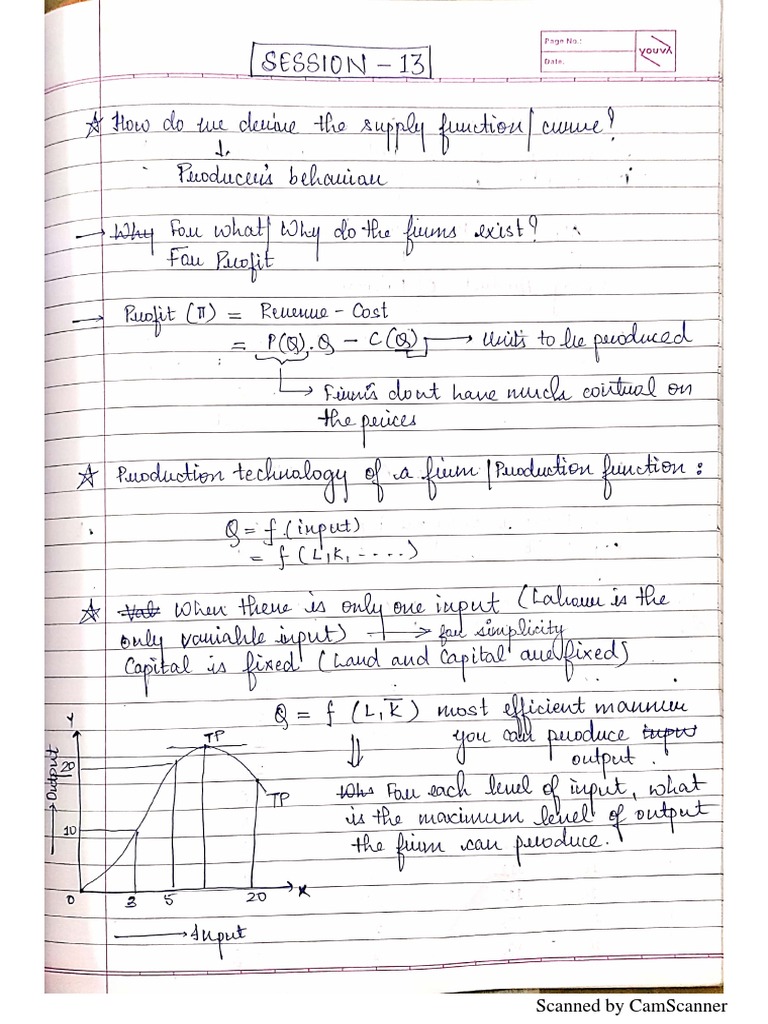 SESSION - 13
Page No.:
Date.
YOUVA
☆ How do we derive the supply function/curve?
↓
Producer's behaviour
→ Why For what/Why do the firms exist?
For Profit
→ Profit (π) = Revenue - Cost
= P(Q).Q - C(Q) → Units to be produced
→ Firms dont have much control on
the prices
☆ Production technology of a firm/Production function:
Q = f(input)
= f(L,K,.....)
☆ When there is only one input (Labour is the
only variable input) → for simplicity
Capital is fixed (Land and Capital are fixed)
Q = f(L,K̅) most efficient manner
you can produce input
output.
⇓
For each level of input, what
is the maximum level of output
the firm can produce.
Y
TP
20
TP
Output →
10
0 3 5 20 X
→ Input
Scanned by CamScanner